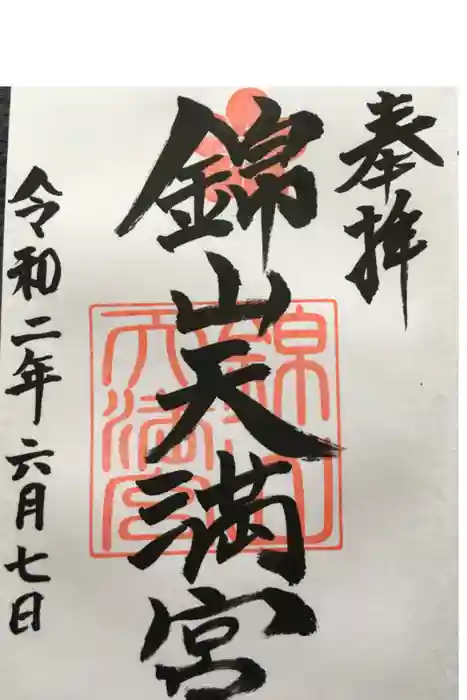 奉拝
錦山天満宮
錦山天満宮
令和二年六月七日